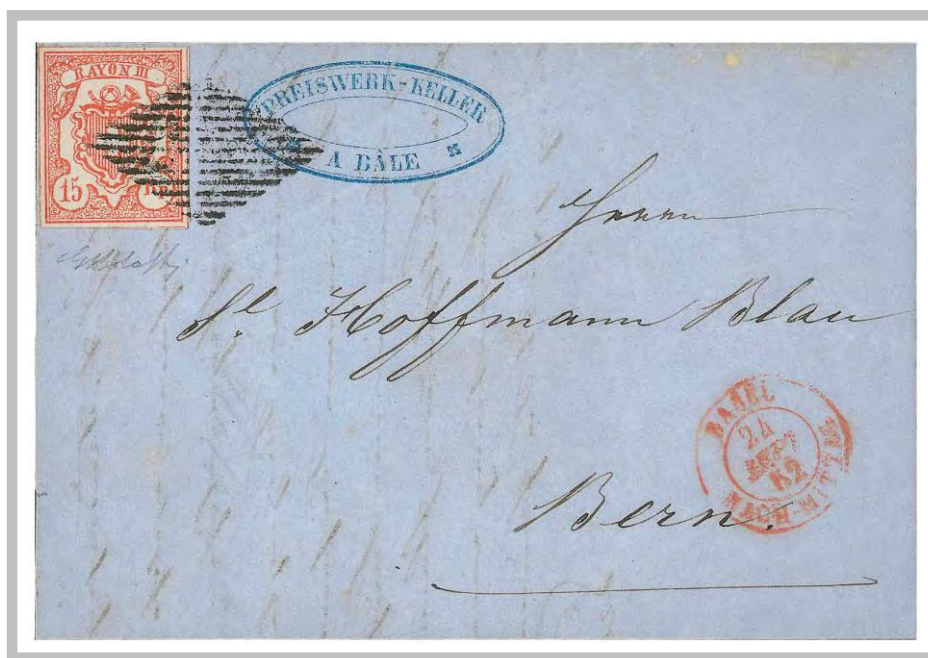 RAYON III
15
PREISWERK-KELLER
A BÂLE
Herrn
Sl. Hoffmann Blau
BASEL
24
SEPT
52
Bern.